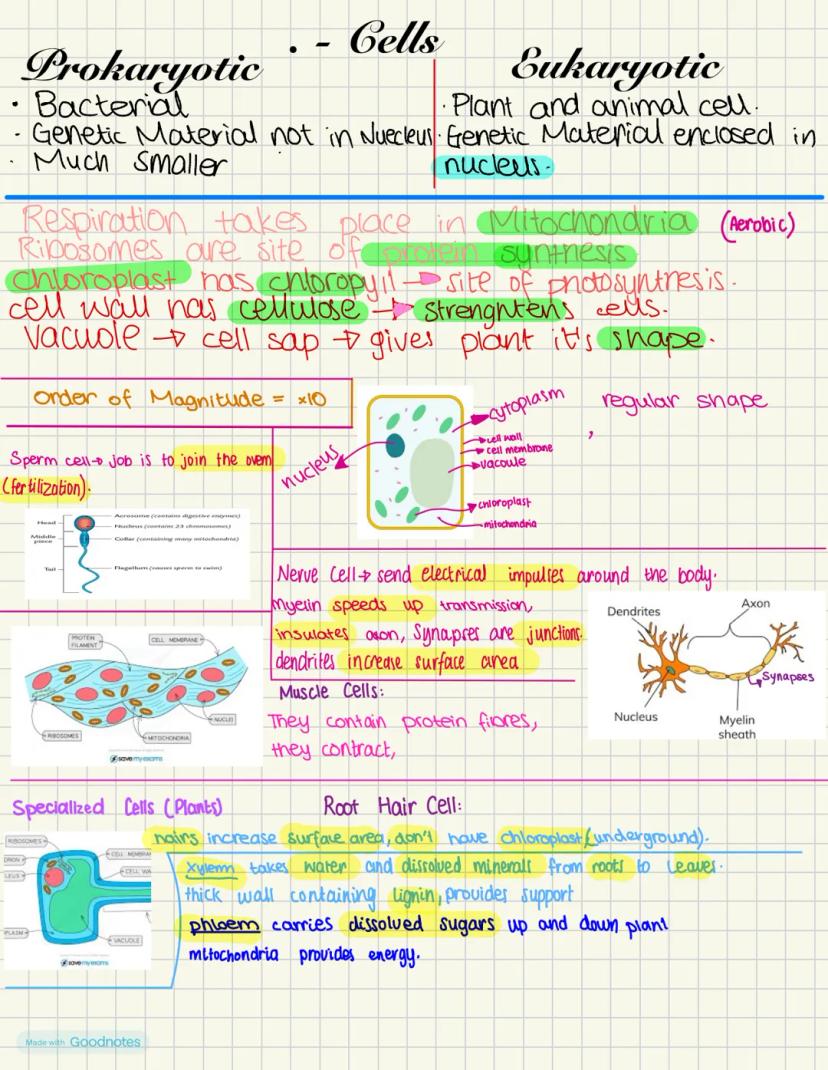 . - Cells
Prokaryotic
Eukaryotic
· Bacterial
· Genetic Material not in Nuecleus
· Much Smaller
· Plant and animal cell.
· Genetic Material enclosed in
nucleus.
Respiration takes place in Mitochondria (Aerobic)
Ribosomes are site of protein synthesis
chloroplast has chloropyll → site of photosyntnesis.
cell wall has cellulose → strenghtens cells.
Vacuole → cell sap → gives plant it's shape.
Order of Magnitude = x10
cytoplasm
regular shape
,
cell wall
cell membrane
vacoule
nucleus
chloroplast
mitochondria
Sperm cell → job is to join the ovem
(fertilization).
Head
Middle piece
Tail
Acrosome (contains digestive enzymes)
Nucleus (contains 23 chromosomes)
Collar (containing many mitochondria)
Flagellum (causes sperm to swim)
Nerve Cell → send electrical impulses around the body.
Myelin speeds up transmission,
insulates axon, Synapses are junctions.
dendrites increase surface area
Dendrites
Axon
Synapses
Nucleus
Myelin
sheath
PROTEIN
FILAMENT
CELL MEMBRANE
NUCLEI
RIBOSOMES
MITOCHONDRIA
savemyexams
Muscle Cells:
They contain protein fibres,
they contract,
Specialized Cells (Plants)
Root Hair Cell:
hairs increase surface area, don't have chloroplast (underground).
xylem takes water and dissolved minerals from roots to leaves.
thick wall containing lignin, provides support
phloem carries dissolved sugars up and down plant
mitochondria provides energy.
RIBOSOMES
DRION
LEUS
PLASM
CELL MEMBRAN
CELL WA
VACUOLE
savemyexams
Made with Goodnotes